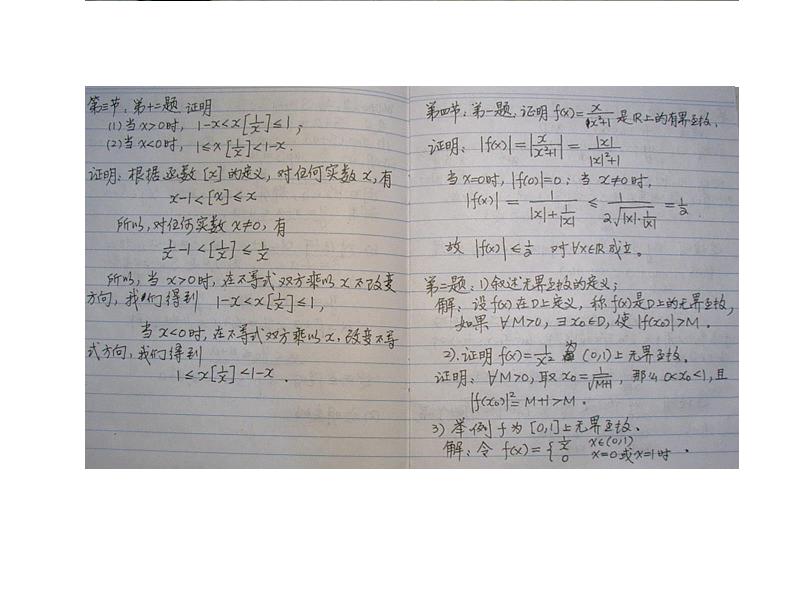 第三节、第十二题 证明
(1)当 x>0时, 1-x<x[1/x]≤1;
(2)当 x<0时, 1≤x[1/x]<1-x.
证明: 根据函数 [x] 的定义, 对任何实数 x, 有
x-1<[x]≤x
所以, 对任何实数 x≠0, 有
1/x-1<[1/x]≤1/x
所以, 当 x>0时, 在不等式双方乘以 x 不改变
方向, 我们得到 1-x<x[1/x]≤1,
当 x<0时, 在不等式双方乘以 x, 改变不等
式方向, 我们得到
1≤x[1/x]<1-x.
第四节, 第一题, 证明 f(x)=x/(x²+1) 是 R 上的有界函数.
证明: |f(x)|=|x/(x²+1)|=|x|/(|x|²+1)
当 x=0时, |f(0)|=0; 当 x≠0时,
|f(x)|=1/(|x|+1/|x|)≤1/(2√(|x|·1/|x|))=1/2.
故 |f(x)|≤1/2 对∀x∈R 成立.
第二题: 1)叙述无界函数的定义;
解: 设 f(x) 在 D 上定义, 称 f(x) 是 D 上的无界函数,
如果 ∀M>0, ∃x₀∈D, 使 |f(x₀)|>M.
2).证明 f(x)=1/x² 为 (0,1)上无界函数.
证明: ∀M>0, 取 x₀=1/√(M+1), 那么 0<x₀<1, 且
|f(x₀)|²=M+1>M.
3) 举例 f 为 [0,1]上无界函数.
解: 令 f(x)={1/x x∈(0,1)
0 x=0或x=1时.